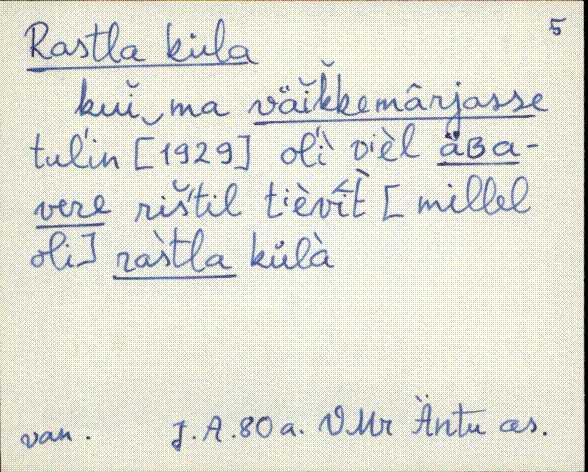 5
Rastla küla
kuĭ ma väĭkkemârjasse
tuĺin [1929] oĺì vièl äʙa-
vere rišt́il tièvī̆t̀ [millel
oli] rastla külà
van. J.A. 80 a. VMr Äntu as.